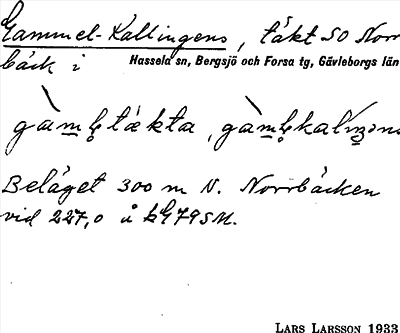 Gammel-Kallingens, täkt SO Norr
bäck i Hassela sn, Bergsjö och Forsa tg, Gävleborgs län
gàmḷtäkta, gàmḷkalıŋəns
Beläget 300 m N. Norrbäcken
vid 227,0 å bl 79 SM.
LARS LARSSON 1933